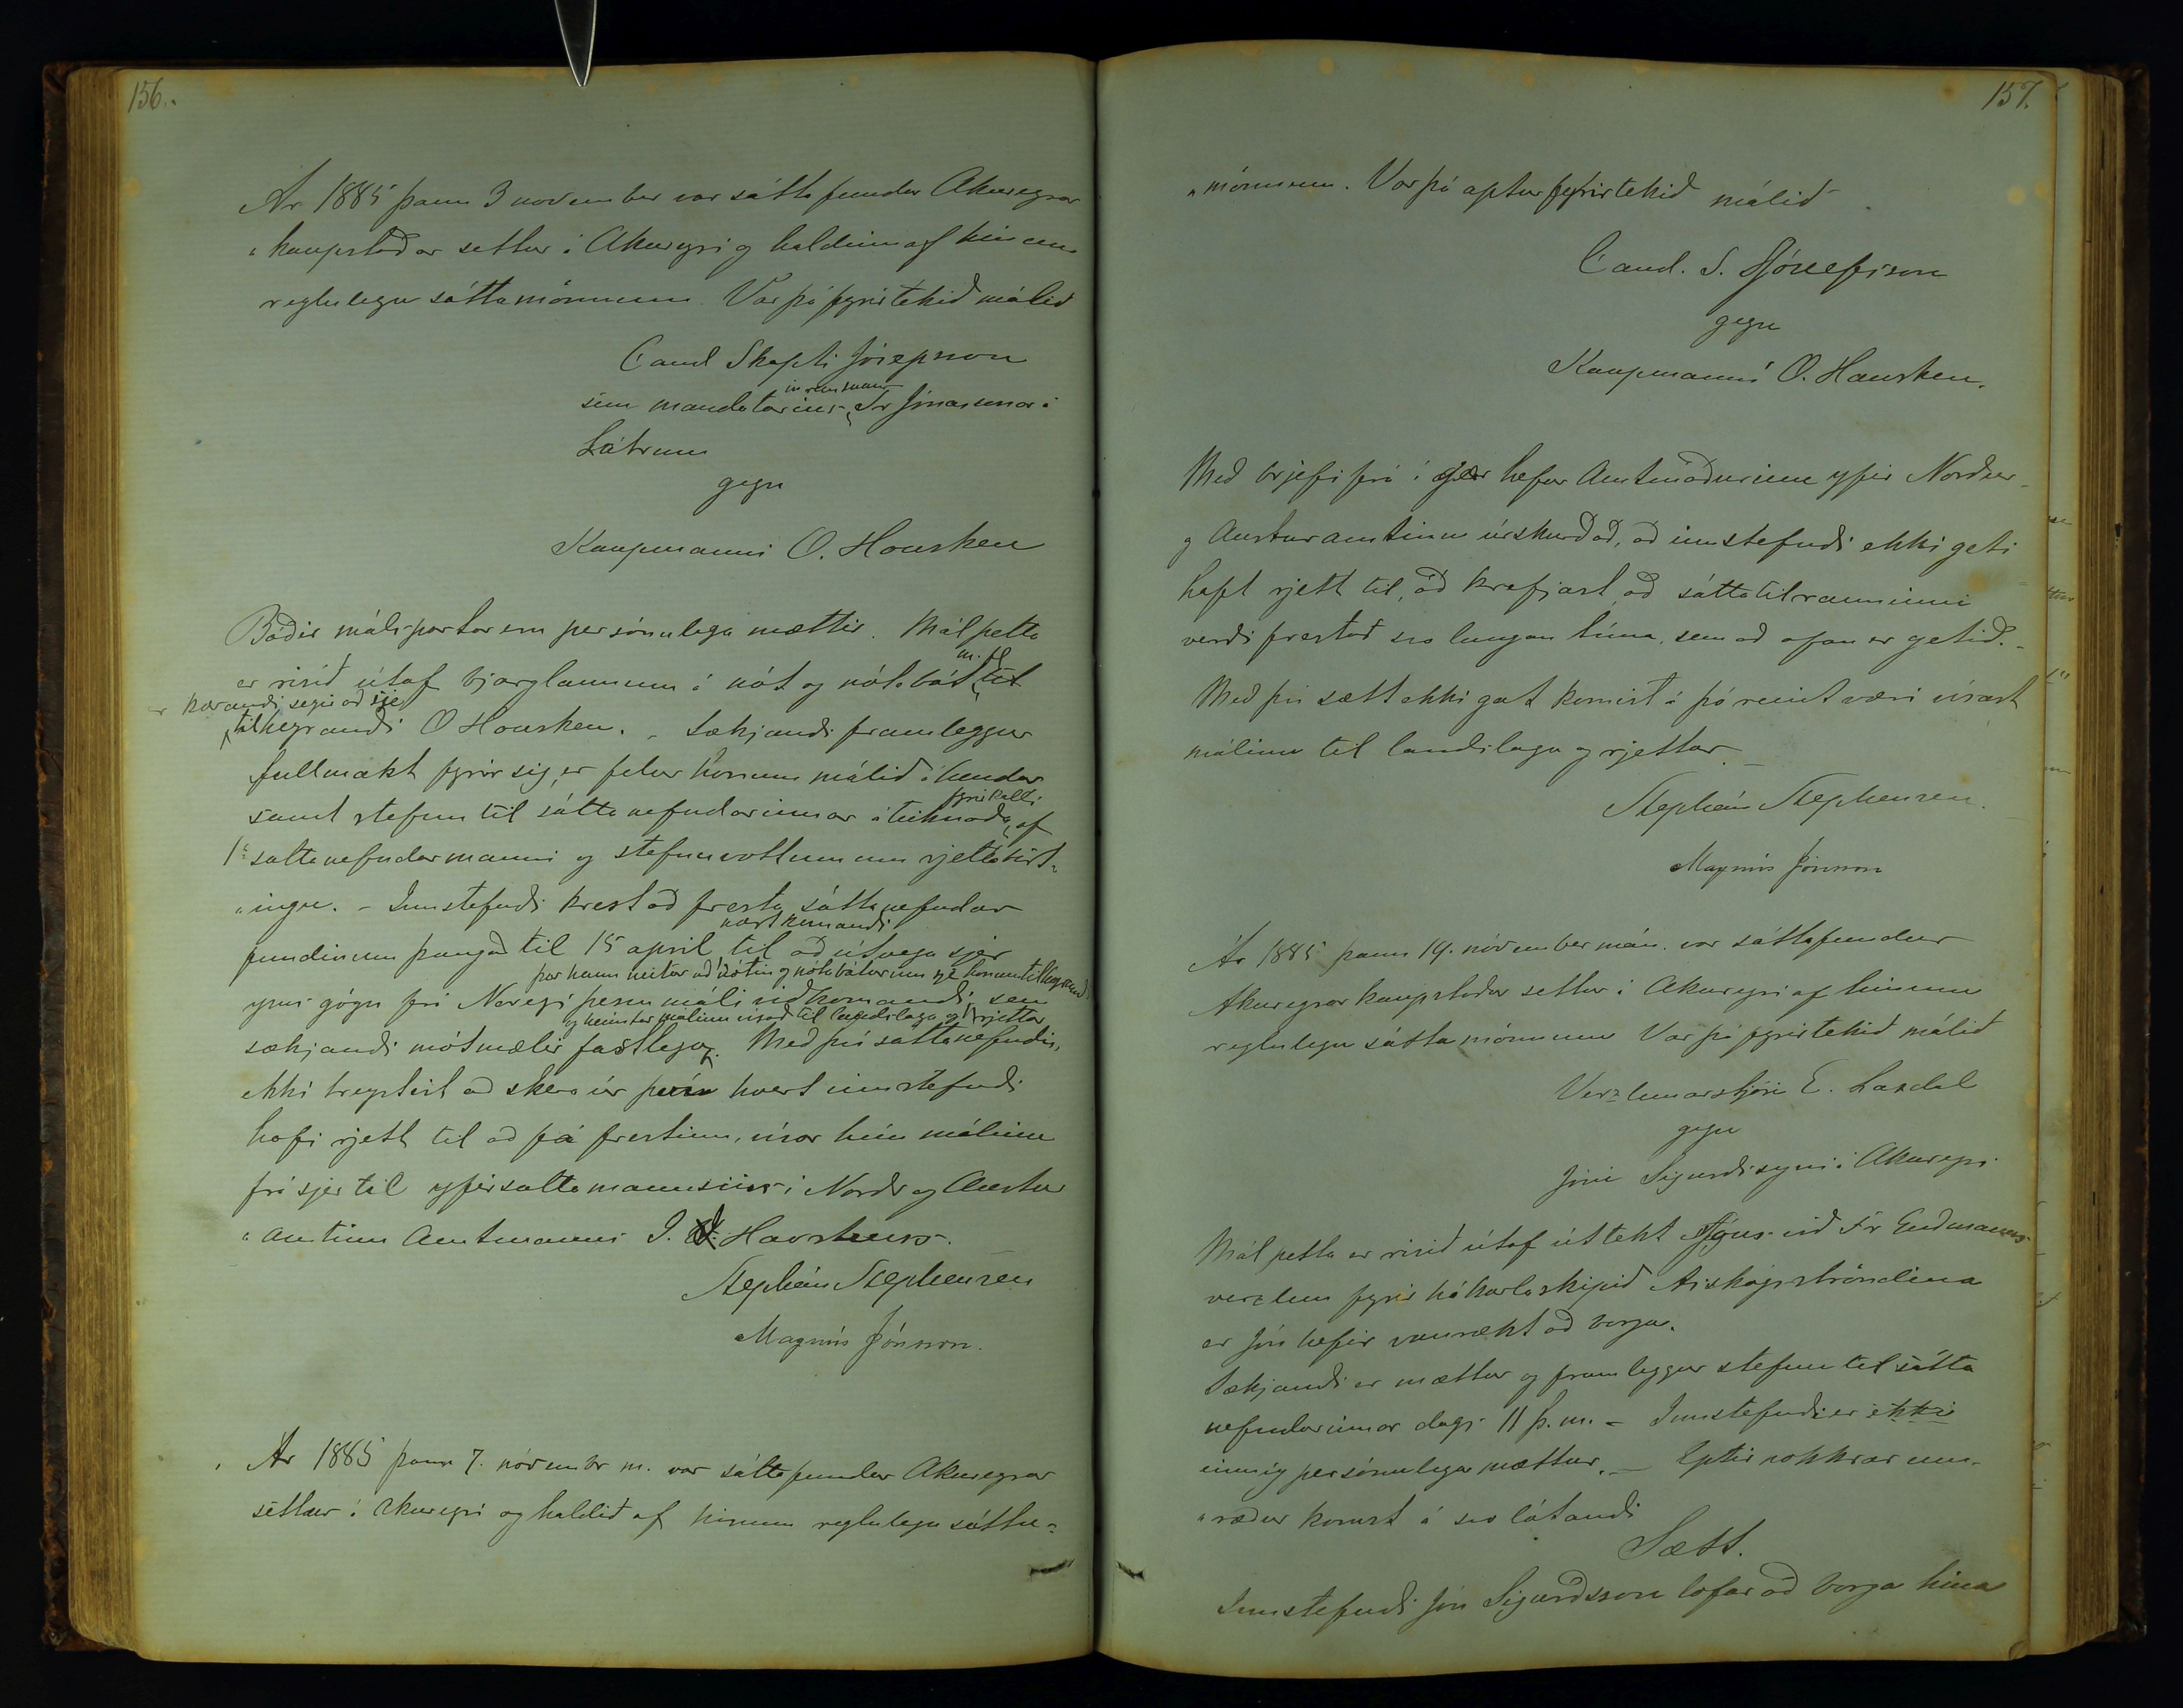 156.
Ár 1885 þann 3 november var sáttafundur Akureyrar
„kaupstaðar settur á Akureyri og haldinn af hinum
reglulegu sáttamönnum. Var þá fyrirtekið málið
Cand Skapti Jósepsson
sem mandatarius Tr Jónassonar í
Látrum
gegn
Kaupmanni O. Housken
Báðir málspartar eru persónulega mættir. Mál þetta
m. fl
er risið útaf bjarglaunum á nót og nótabát
kærandi segir að sje
tilheyrandi O Housken. Sækjandi framleggur
fullmakt fyrir sig, er felur honum málið á hendur
fyrirkalli
samt stefnu til sáttanefndarinnar áteiknaða af
1. sáttanefndarmanni og stefnuvottunum um rjetta birt-
„ingu. - Innstefndi krest að fresta sáttanefndar
næstkomandi
fundinum þangað til 15 april til að útvega sjer
þar hann neitar að nótin og nótabáturinn sje honum tilheyrandi
ýms gögn frá Noregi þessu máli viðkomandi, sem
og heimtar málinu vísað til landslaga og rjettar
sækjandi mótmælir fastlega. Með því sáttanefndin,
ekki treystist að skera úr því hvert innstefndi
hafi rjett til að fá frestinn, vísar hún málinu
frá sjer til yfirsáttamannsins í Norðr og Austur
„amtinu Amtmanni J. Havsteens.
Stephán Stephensen
Magnús Jónsson.
Ár 1885 þann 7. nóvembr m. var sáttafundur Akureyrar
settur á Akureyri og haldið af hinum reglulegu sátta-
157.
„mönnum. Var þá aptur fyrirtekið málið
Cand. S. Jósefsson
gegn
Kaupmanni O. Housken.
Með brjefi frá í gær hefur Amtmaðurinn yfir Norður-
og Austuramtinu úrskurðað, að innstefndi ekki geti
haft rjett til, að krefjast, að sáttatilrauninni
verði frestað svo langan tíma, sem að ofan er getið. -
Með því sætt ekki gat komist á þó reynt væri vísast
málinu til landslaga og rjettar. -
Stephán Stephensen.
Magnús Jónsson
Ár 1885 þann 19. nóvember mán. var sáttafundur
Akureyrar kaupstaðar settur á Akureyri af hinum
reglulegu sáttamönnum Var þá fyrirtekið málið
Verzlunarstjóri E. Laxdal
gegn
Jóni Sigurðssyni á Akureyri
Mál þetta er risið útaf úttekt Jóns við Fr Gudmanns
verzlun fyrir hákarlaskipið Árskógsströndina
er Jón hefir vanrækt að borga.
Sækjandi er mættur og framleggur stefnu til sátta
nefndarinnar dags 11 þ. m. - Innstefndi er ekki
einnig persónulega mættur. - Eptir nokkrar um-
„ræður komst á svo látandi
Sætt.
Innstefndi Jón Sigurðsson lofar að borga hina